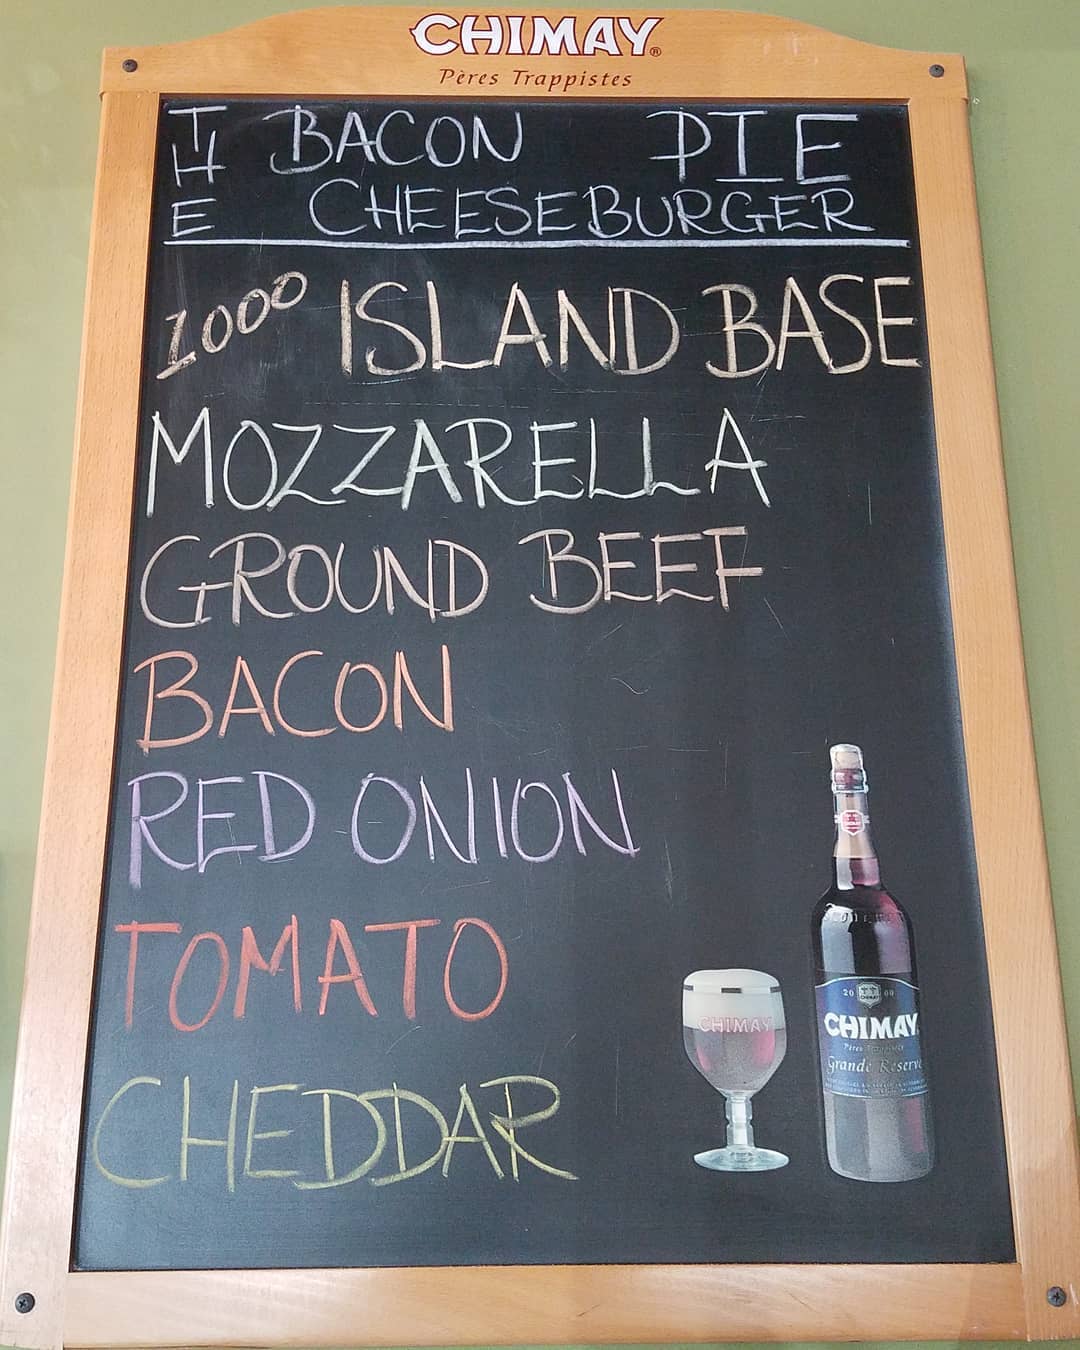 CHIMAY®
Pères Trappistes
THE BACON PIE
CHEESEBURGER
1000 ISLAND BASE
MOZZARELLA
GROUND BEEF
BACON
RED ONION
TOMATO
CHEDDAR
CHIMAY
20 00
CHIMAY
CHIMAY
Pères Trappistes
Grande Réserve